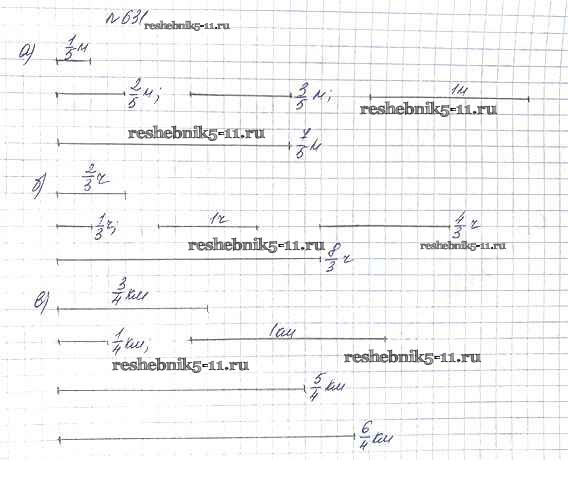 №631
reshebnik5-11.ru
а) 1/5 м
2/5 м; 3/5 м; 1м
reshebnik5-11.ru
reshebnik5-11.ru
7/5 м
б) 2/3 ч
1/3 ч; 1ч 4/3 ч
reshebnik5-11.ru reshebnik5-11.ru
8/3 ч
в) 3/4 км
1/4 км, 1км
reshebnik5-11.ru reshebnik5-11.ru
5/4 км
6/4 км